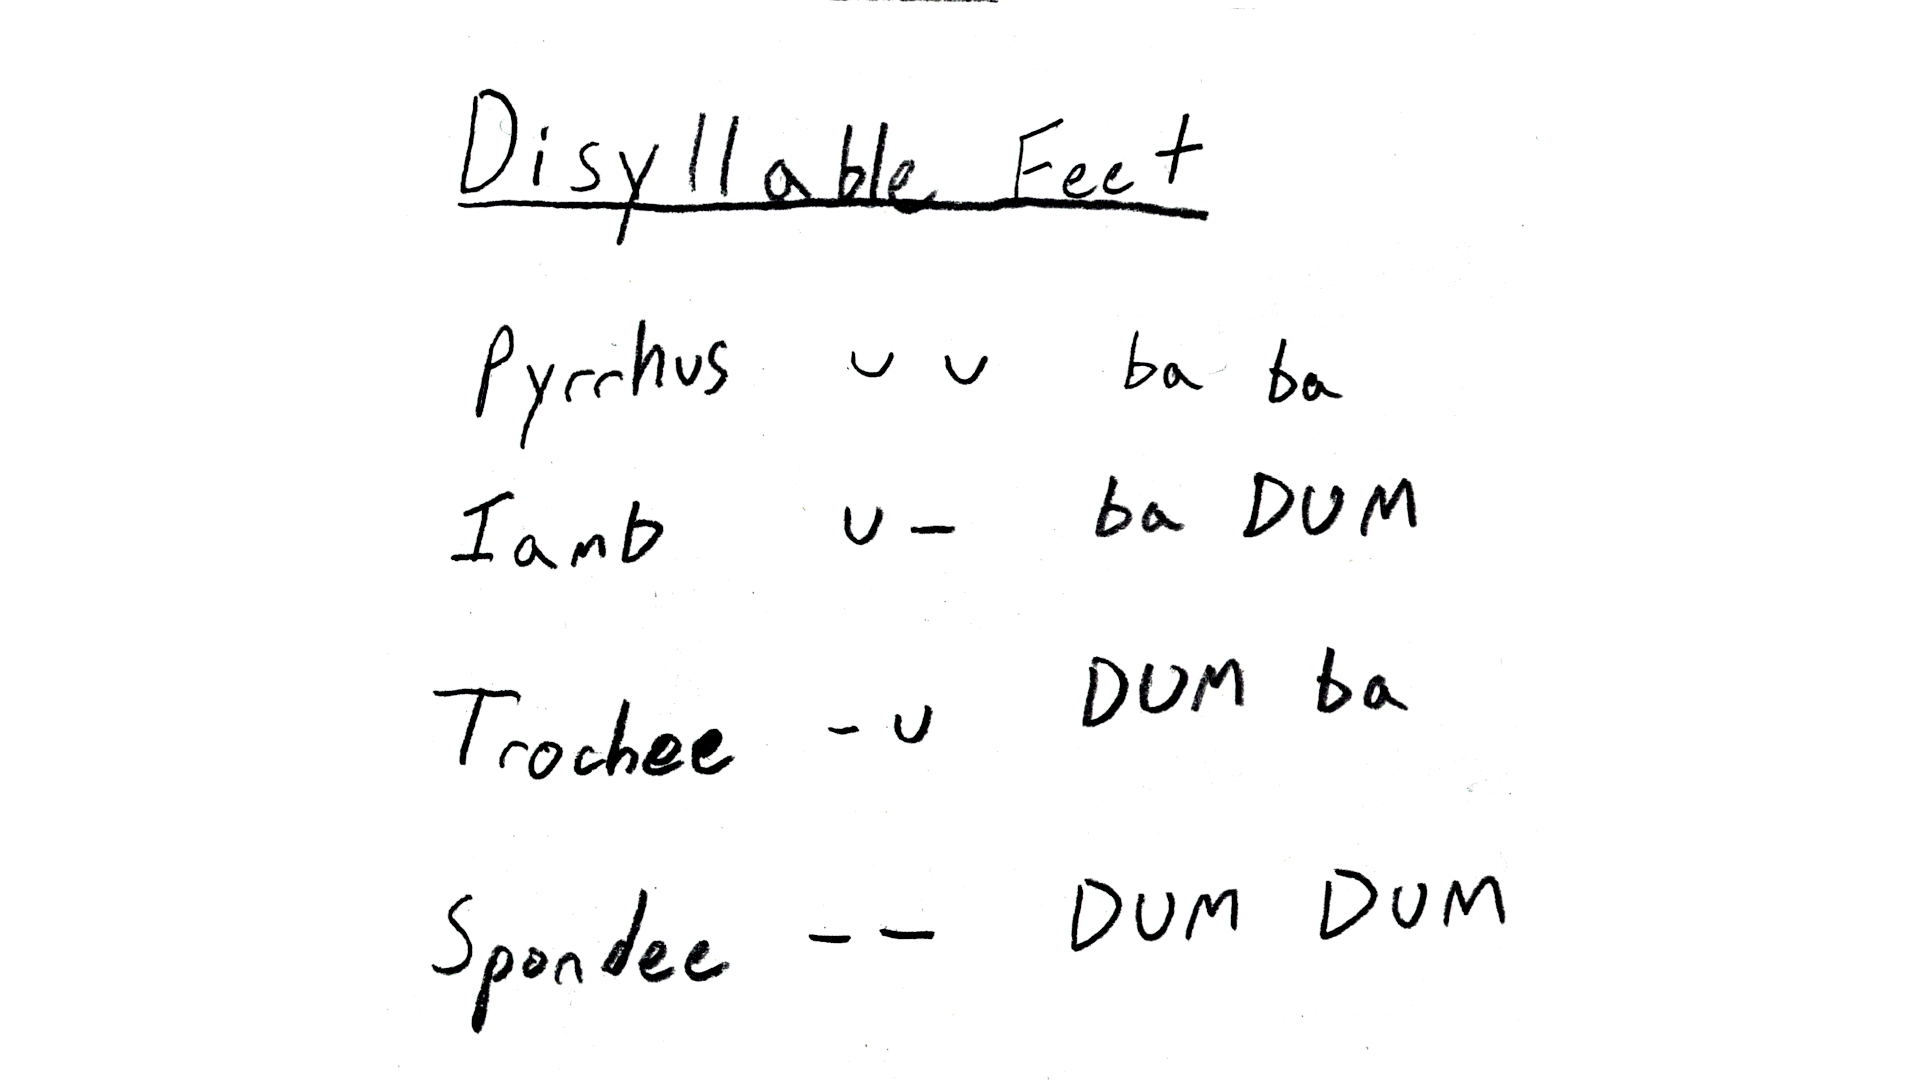 Disyllable Feet
Pyrrhus ∪ ∪ ba ba
Iamb ∪ – ba DUM
Trochee – ∪ DUM ba
Spondee – – DUM DUM